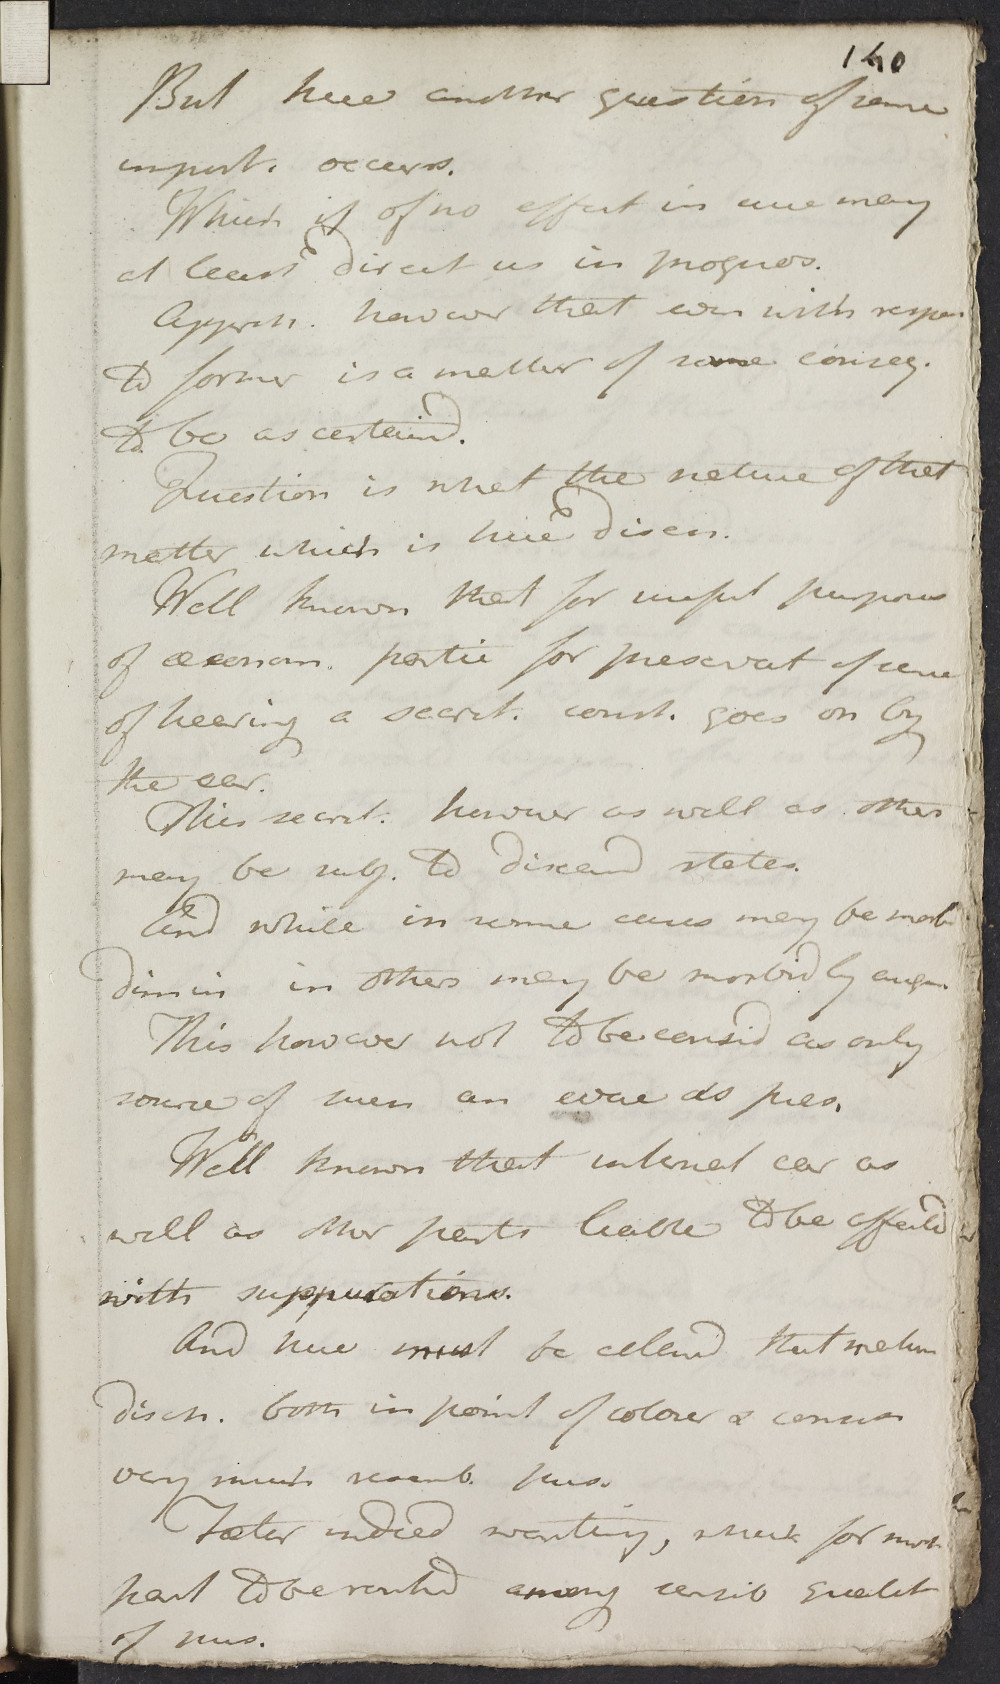 140
But here another question of some
import. occurs.
Which if of no effect in cure may
at least direct us in prognos.
Appreh. however that even with respe
to former is a matter of some conseq.
to be ascertaind.
Question is what the nature of that
matter which is here disch.
Well known that for useful purposes
of oeconom. partic for preservat of sense
of hearing a secret. const. goes on by
the ear.
This secret. however as well as others
may be subj. to diseasd states.
And while in some cases may be morb
dimin in others may be morbidly augm
This however not to be considd as only
source of such an evac as pres.
Well known that internal ear as
well as other parts liable to be affectd
with suppurations.
And here must be allowd that matter
disch. both in point of colour & consist
very much resemb. pus.
Foetor indeed wanting, which for most
part to be rankd among sensib qualit
of pus.